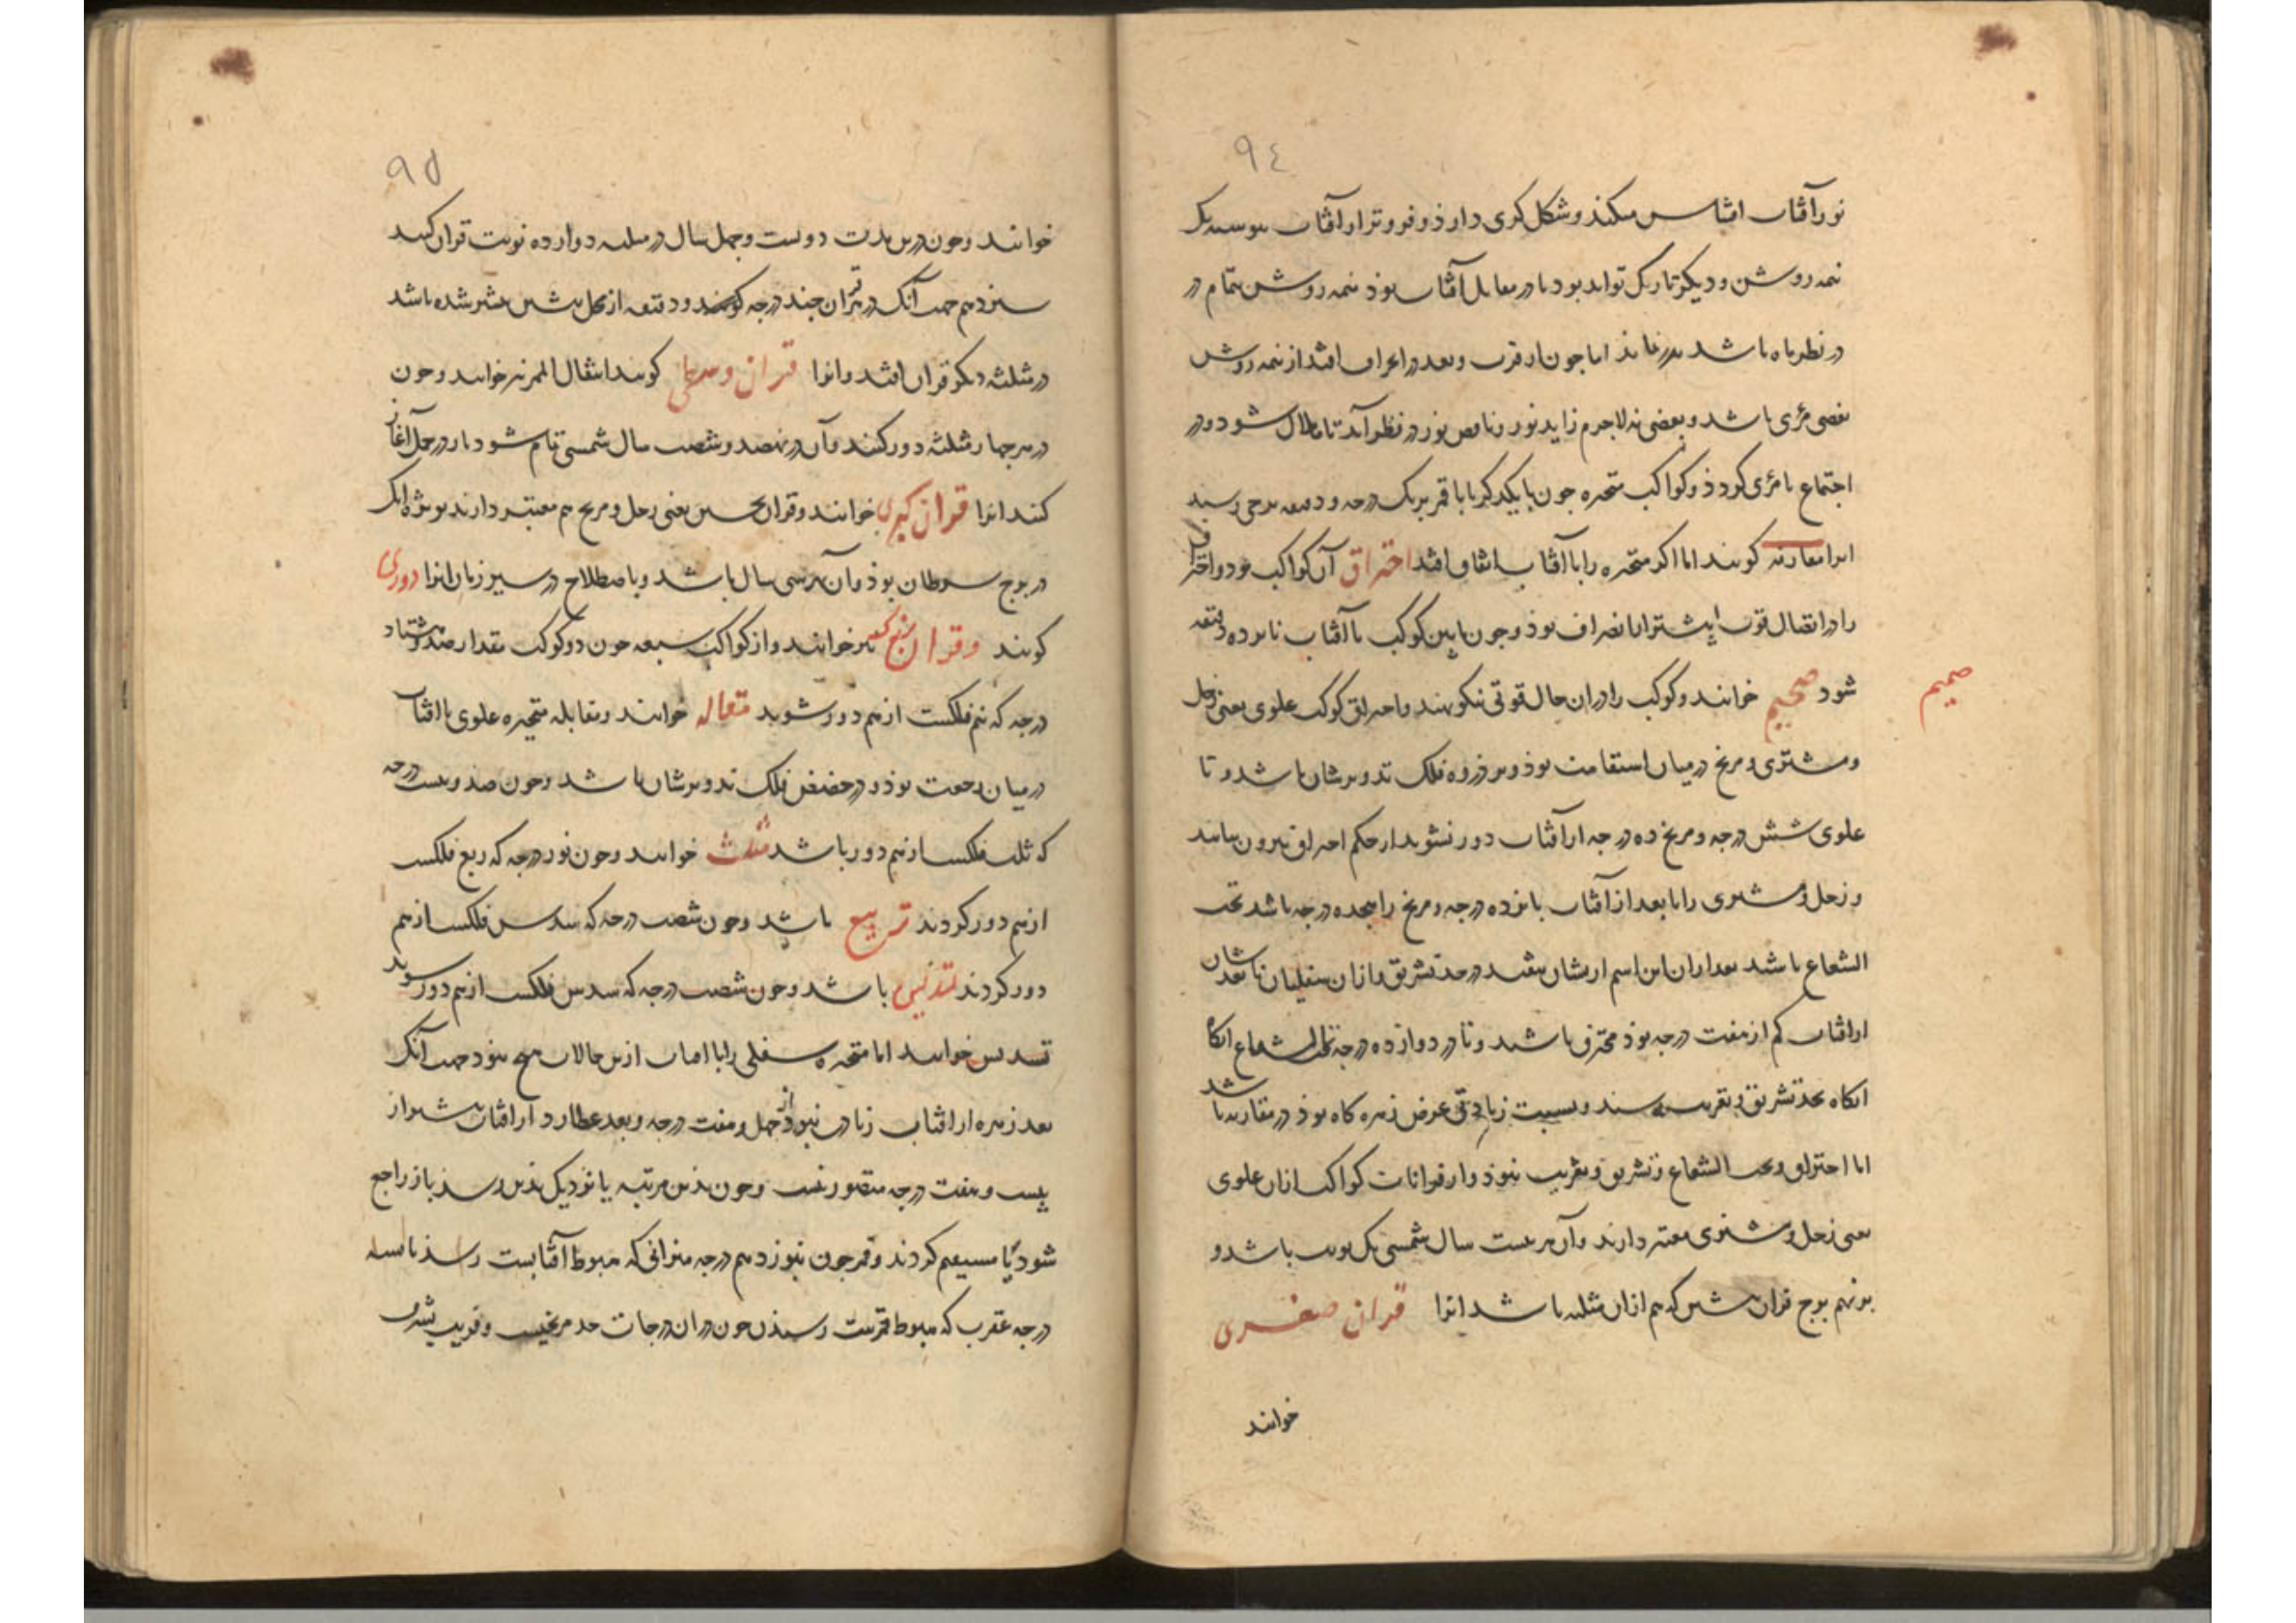 ٩٤
نور آفتاب اقتباس میکند و شکل کری دارد و فروتر از آفتاب پیوسته یک
نیمه روشن و دیگر تاریک تواند بود تا در مقابل آفتاب بوذ نیمه روشن بتمام در
در نظر ما باشد بدر نماید اما چون از قرب و بعد در انحراف افتد از نیمه روشن
بعضی مرئی باشد و بعضی نه لاجرم زاید نور و ناقص نور در نظر آید تا هلال شود و در
اجتماع نامرئی کردذ و کواکب متحیره چون با یکدیکر یا با قمر بریک درجه و دقیقه برجی رسند
انرا مقارنه کویند اما اکر متحیره را با آفتاب اتفاق افتد احتراق آن کواکب بود و احتراق
را در اتصال قوت بیشتر از انصراف بوذ و چون مابین کوکب با آفتاب شانزده دقیقه
شود صمیم خوانند و کوکب را دران حال قوتی نکو نهند و احتراق کوکب علوی یعنی زحل
صمیم
و مشتری و مریخ در میان استقامت بوذ و بر ذروه فلک تدویرشان باشد و تا
علوی شش درجه و مریخ ده درجه از آفتاب دور نشوند از حکم احتراق بیرون نیایند
و زحل و مشتری را تا بعد از آفتاب پانزده درجه و مریخ را هجده درجه باشد تحت
الشعاع باشد بعد ازان این اسم ازیشان بیفتد در حد تشریق و ازان سفلیان تا بعدشان
از افتاب کم از هفت درجه بوذ محترق باشند و تا در دوازده درجه تحت الشعاع انکاه
انکاه بحد تشریق و تغریب رسند و بسبب زیادتی عرض زهره کاه بوذ در مقارنه باشد
اما احتراق و تحت الشعاع و تشریق و تغریب نبوذ و از قرانات کواکب ازان علوی
یعنی زحل و مشتری معتبر دارند و آن هر بیست سال شمسی یک نوبت باشد و
بر نهم برج قران پیشین که هم ازان مثلثه باشد انرا قران صغری
خوانند
٩٥
خوانند و چون درین مدت دویست و چهل سال در مثلثه دوازده نوبت قران کنند
سیزدهم جهت آنک در هر قران چند درجه و دقیقه از محل پیشین بیشتر شده باشد
در مثلثه دیکر قران افتد و انرا قران وسطی کویند انتقال الممر نیز خوانند و چون
در هر چهار مثلثه دور کنند و آن در نهصد و شصت سال شمسی تمام شود باز در حمل آغاز
کنند انرا قران کبری خوانند و قران نحسین یعنی زحل و مریخ هم معتبر دارند بویژه انک
در برج سرطان بوذ و آن هر سی سال باشد و باصطلاح در سیر زمان انرا دوری
کویند و قران نیز خوانند و از کواکب سبعه چون دو کوکب بمقدار صد و هشتاد
درجه که نیم فلکست از هم دور شوند مقابله خوانند و مقابله متحیره علوی با افتاب
در میان رجعت بوذ و در حضیض فلک تدویرشان باشد و چون صد و بیست درجه
که ثلث فلکست از هم دور باشد مثلث خوانند و چون نود درجه که ربع فلکست
از هم دور کردند تربیع باشد و چون شصت درجه که سدس فلکست از هم
دور کردند باشد و چون شصت درجه که سدس فلکست از هم دور شوند
تسدیس خوانند اما متحیره سفلی را با افتاب ازین حالات هیچ نبود جهت آنک
بعد زهره از افتاب زیادت نبود از چهل و هفت درجه و بعد عطارد از افتاب بیشتر از
بیست و هفت درجه متصور نیست و چون بذین مرتبه یا نزدیک بذین رسد باز راجع
شود یا مستقیم کردند و قمر چون بنوزدهم درجه میزانی که هبوط آفتابست رسد تا سه
درجه عقرب که هبوط قمرست رسیدن چون دران درجات حد مریخست و قریب بشرف